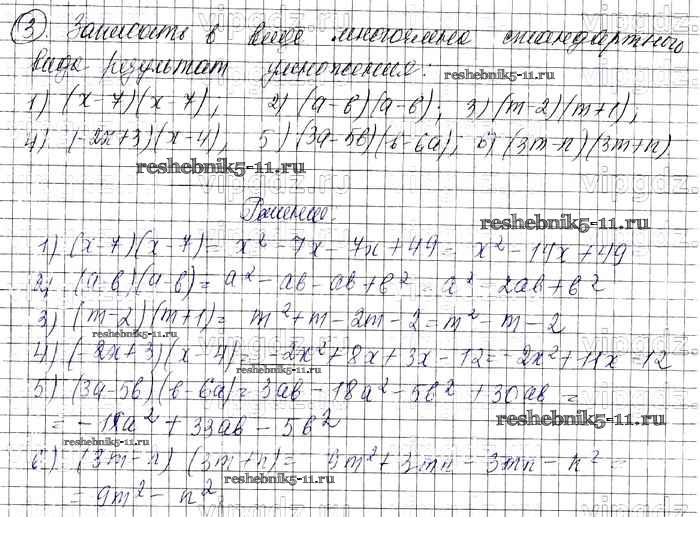 ③. Записать в виде многочлена стандартного
вида результат умножения:
1) (x-7)(x-7), 2) (a-b)(a-b); 3) (m-2)(m+1),
4) (-2x+3)(x-4), 5) (3a-5b)(b-6a); 6) (3m-n)(3m+n).
Решение:
1) (x-7)(x-7) = x² - 7x - 7x + 49 = x² - 14x + 49
2) (a-b)(a-b) = a² - ab - ab + b² = a² - 2ab + b²
3) (m-2)(m+1) = m² + m - 2m - 2 = m² - m - 2
4) (-2x+3)(x-4) = -2x² + 8x + 3x - 12 = -2x² + 11x - 12
5) (3a-5b)(b-6a) = 3ab - 18a² - 5b² + 30ab =
= -18a² + 33ab - 5b²
6) (3m-n)(3m+n) = 9m² + 3mn - 3mn - n² =
= 9m² - n²
reshebnik5-11.ru
reshebnik5-11.ru
reshebnik5-11.ru
reshebnik5-11.ru
reshebnik5-11.ru
reshebnik5-11.ru
reshebnik5-11.ru
vipgdz.ru